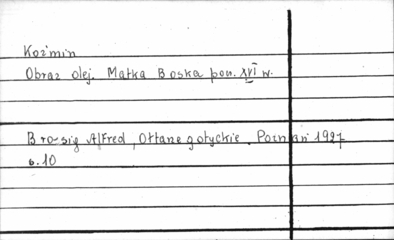 Koźmin
Obraz olej. Matka Boska pow. XVI w.
Brosig Alfred, Ołtarze gotyckie. Poznań 1927
s. 10